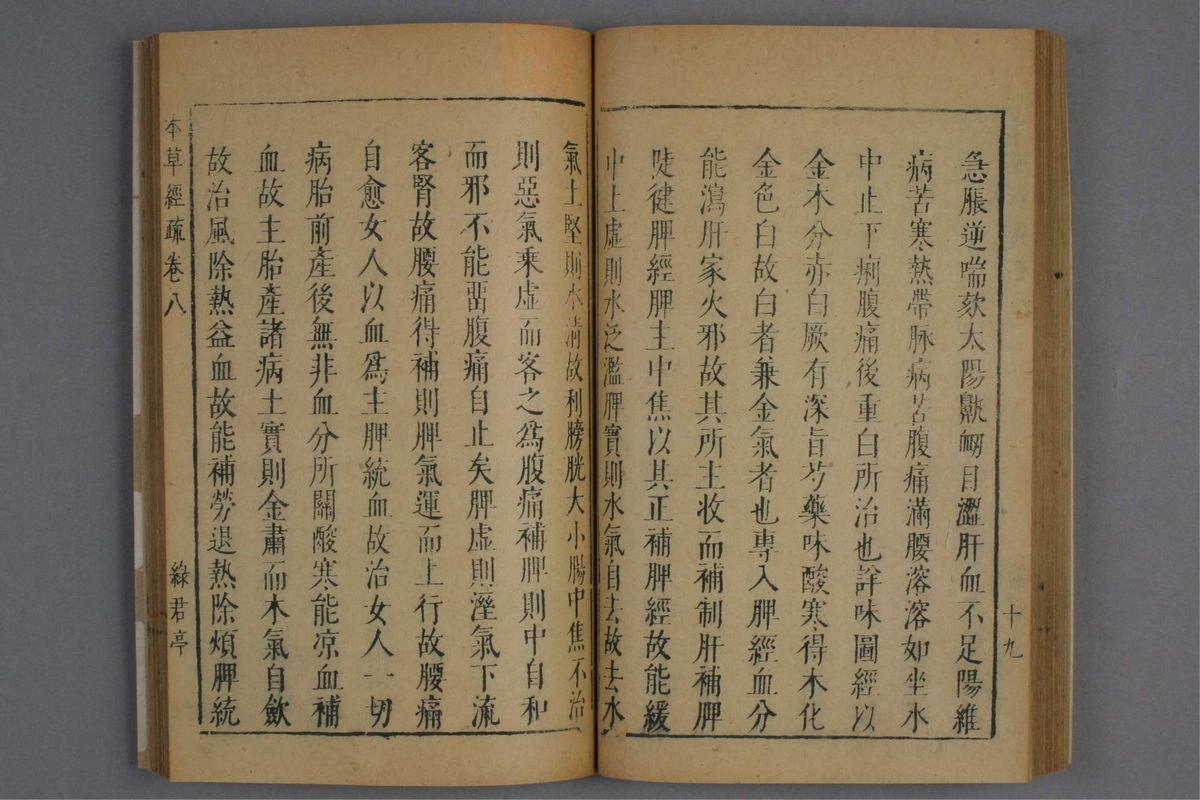 急脹逆喘欬太陽鼽衂目澀肝血不足陽維
病苦寒熱帶脉病苦腹痛滿腰溶溶如坐水
中止下痢腹痛後重白所治也詳味圖經以
金木分赤白厥有深旨芍藥味酸寒得木化
金色白故白者兼金氣者也專入脾經血分
能瀉肝家火邪故其所主收而補制肝補脾
陡健脾經脾主中焦以其正補脾經故能緩
中土虛則水泛濫脾實則水氣自去故去水
十九
氣土堅則水清故利膀胱大小腸中焦不治
則惡氣乘虛而客之爲腹痛補脾則中自和
而邪不能畱腹痛自止矣脾虛則溼氣下流
客腎故腰痛得補則脾氣運而上行故腰痛
自愈女人以血爲主脾統血故治女人一切
病胎前產後無非血分所關酸寒能凉血補
血故主胎產諸病土實則金肅而木氣自斂
故治風除熱益血故能補勞退熱除煩脾統
本草經疏 卷八
綠君亭